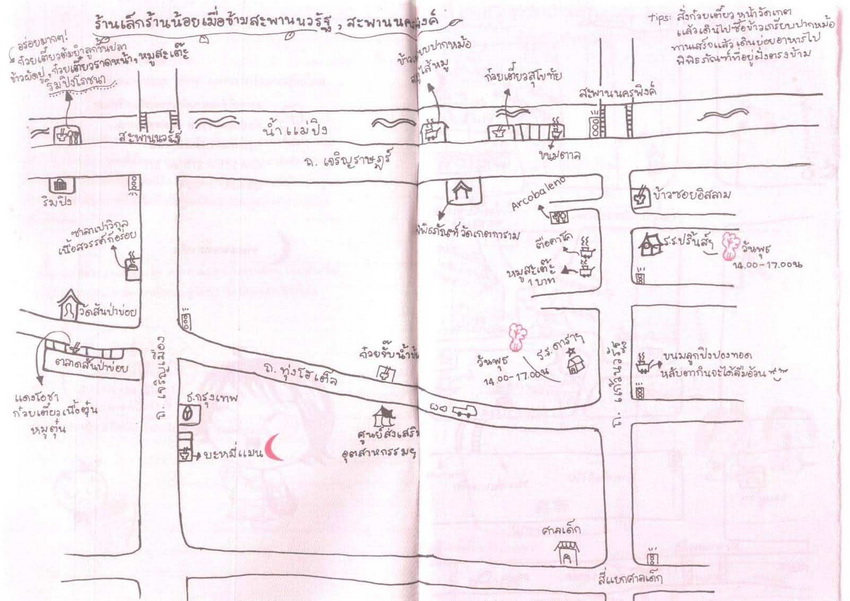 ร้านเล็กร้านน้อยเมื่อข้ามสะพานนวรัฐ, สะพานนครพิงค์
Tips: สั่งก๋วยเตี๋ยวหน้าวัดเกต
แล้วเดินไปซื้อข้าวเกรียบปากหม้อ
ทานเสร็จแล้วเดินย่อยอาหารไป
พิพิธภัณฑ์ที่อยู่ฝั่งตรงข้าม
อร่อยมากๆ!
ก๋วยเตี๋ยวต้มยำลูกชิ้นปลา
ก๋วยเตี๋ยวราดหน้า, หมูสะเต๊ะ
ริมปิงโภชนา
ข้าวเกรียบปากหม้อ
ไส้หมู
ก๋วยเตี๋ยวสุโขทัย
สะพานนครพิงค์
สะพานนวรัฐ
น้ำแม่ปิง
ขนมตาล
ถ. เจริญราษฎร์
ริมปิง
Arcobaleno
ข้าวซอยอิสลาม
พิพิธภัณฑ์วัดเกตการาม
ซาลาเปาวิกุล
เนื้อสวรรค์ก็อร่อย
หมูสะเต๊ะ
1 บาท
ร.ร.ปรินส์ฯ
วันพุธ
14.00-17.00น
วัดสันป่าข่อย
ตลาดสันป่าข่อย
ถ. เจริญเมือง
ถ. ทุ่งโฮเต็ล
วันพุธ
14.00-17.00น
ร.ร. ดาราฯ
ถ. แก้วนวรัฐ
ขนมลูกปิงปองทอด
หลับตากินจะได้ลืมอ้วน
แดงโอชา
ก๋วยเตี๋ยวเนื้อตุ๋น
หมูตุ๋น
ธ.กรุงเทพ
บะหมี่แมน
ศูนย์ส่งเสริม
อุตสาหกรรมฯ
ศาลเด็ก
สี่แยกศาลเด็ก